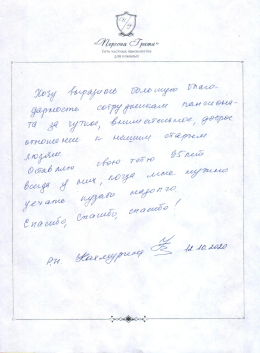 «Персона Грата»
сеть частных пансионатов
для пожилых
Хочу выразить большую благо-
дарность сотрудникам пансиона-
та за чуткое, внимательное, доброе
отношение к нашим старым
людям
Оставляю свою тётю 95 лет
всегда у них, когда мне нужно
уехать куда-то надолго
Спасибо, спасибо, спасибо!
12.10.2020